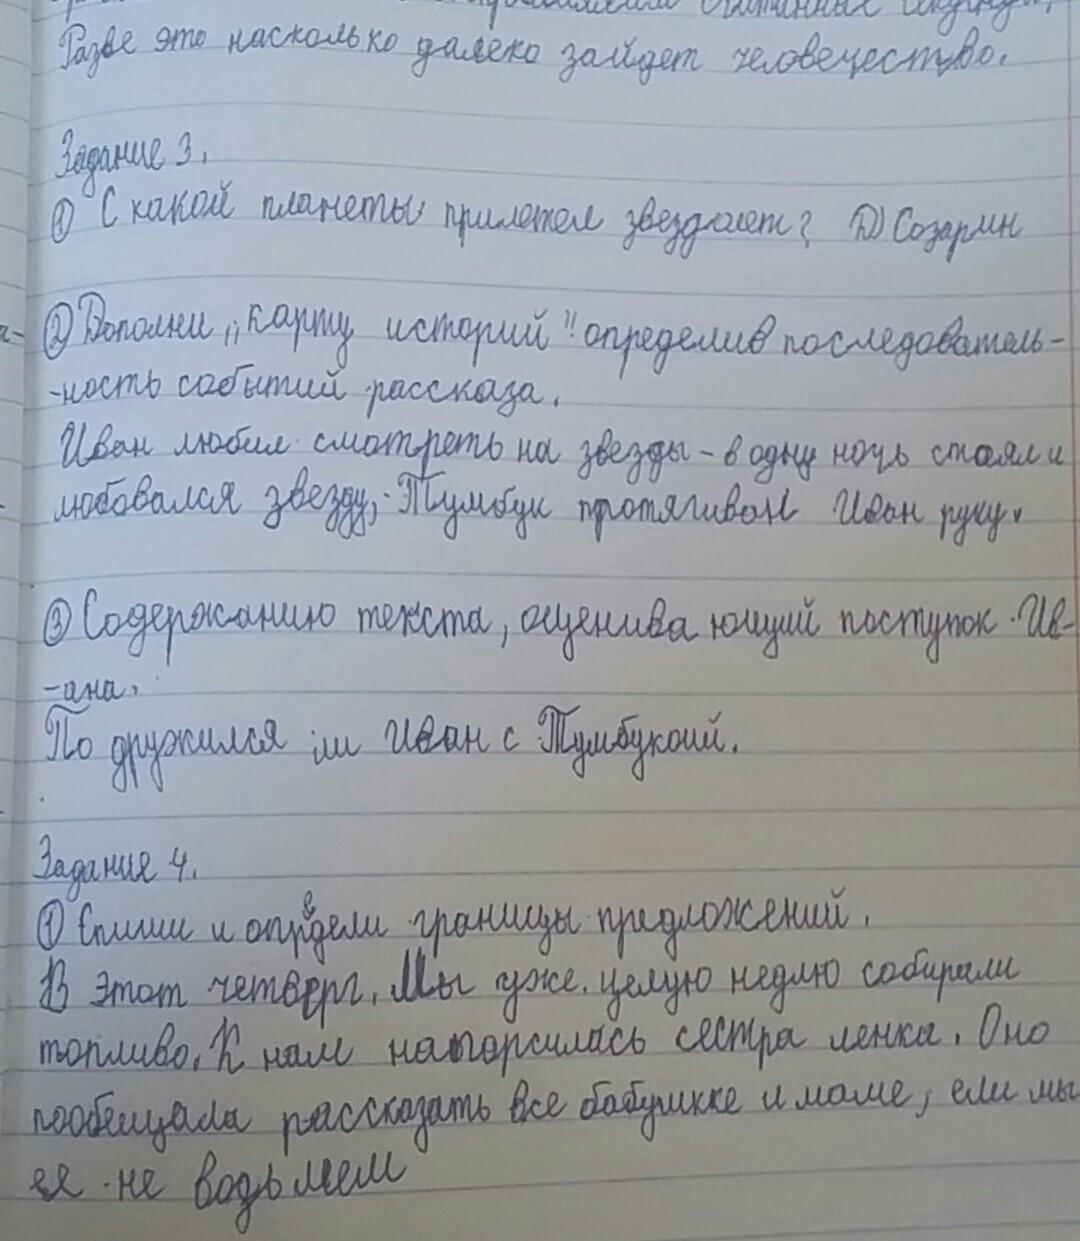 Разве это насколько далеко зайдет человечество.
Задание 3.
① С какой планеты прилетел звездолет? D) Созарин
② Дополни „карту историй" определив последователь-
-ность событий рассказа.
Иван любил смотреть на звезды - в одну ночь стоял и
любовался звезду, Тумбук протягивал Иван руку.
③ Содержанию текста, оценивающий поступок Ив-
-ана.
По дружился ли Иван с Тумбукоий.
Задание 4.
① Спиши и определи границы предложений.
В этот четверг. Мы уже целую недлю собирали
топливо. К нам напорсилась сестра ленка. Оно
пообещала рассказать все бабушкке и маме, ели мы
ея не водьмем